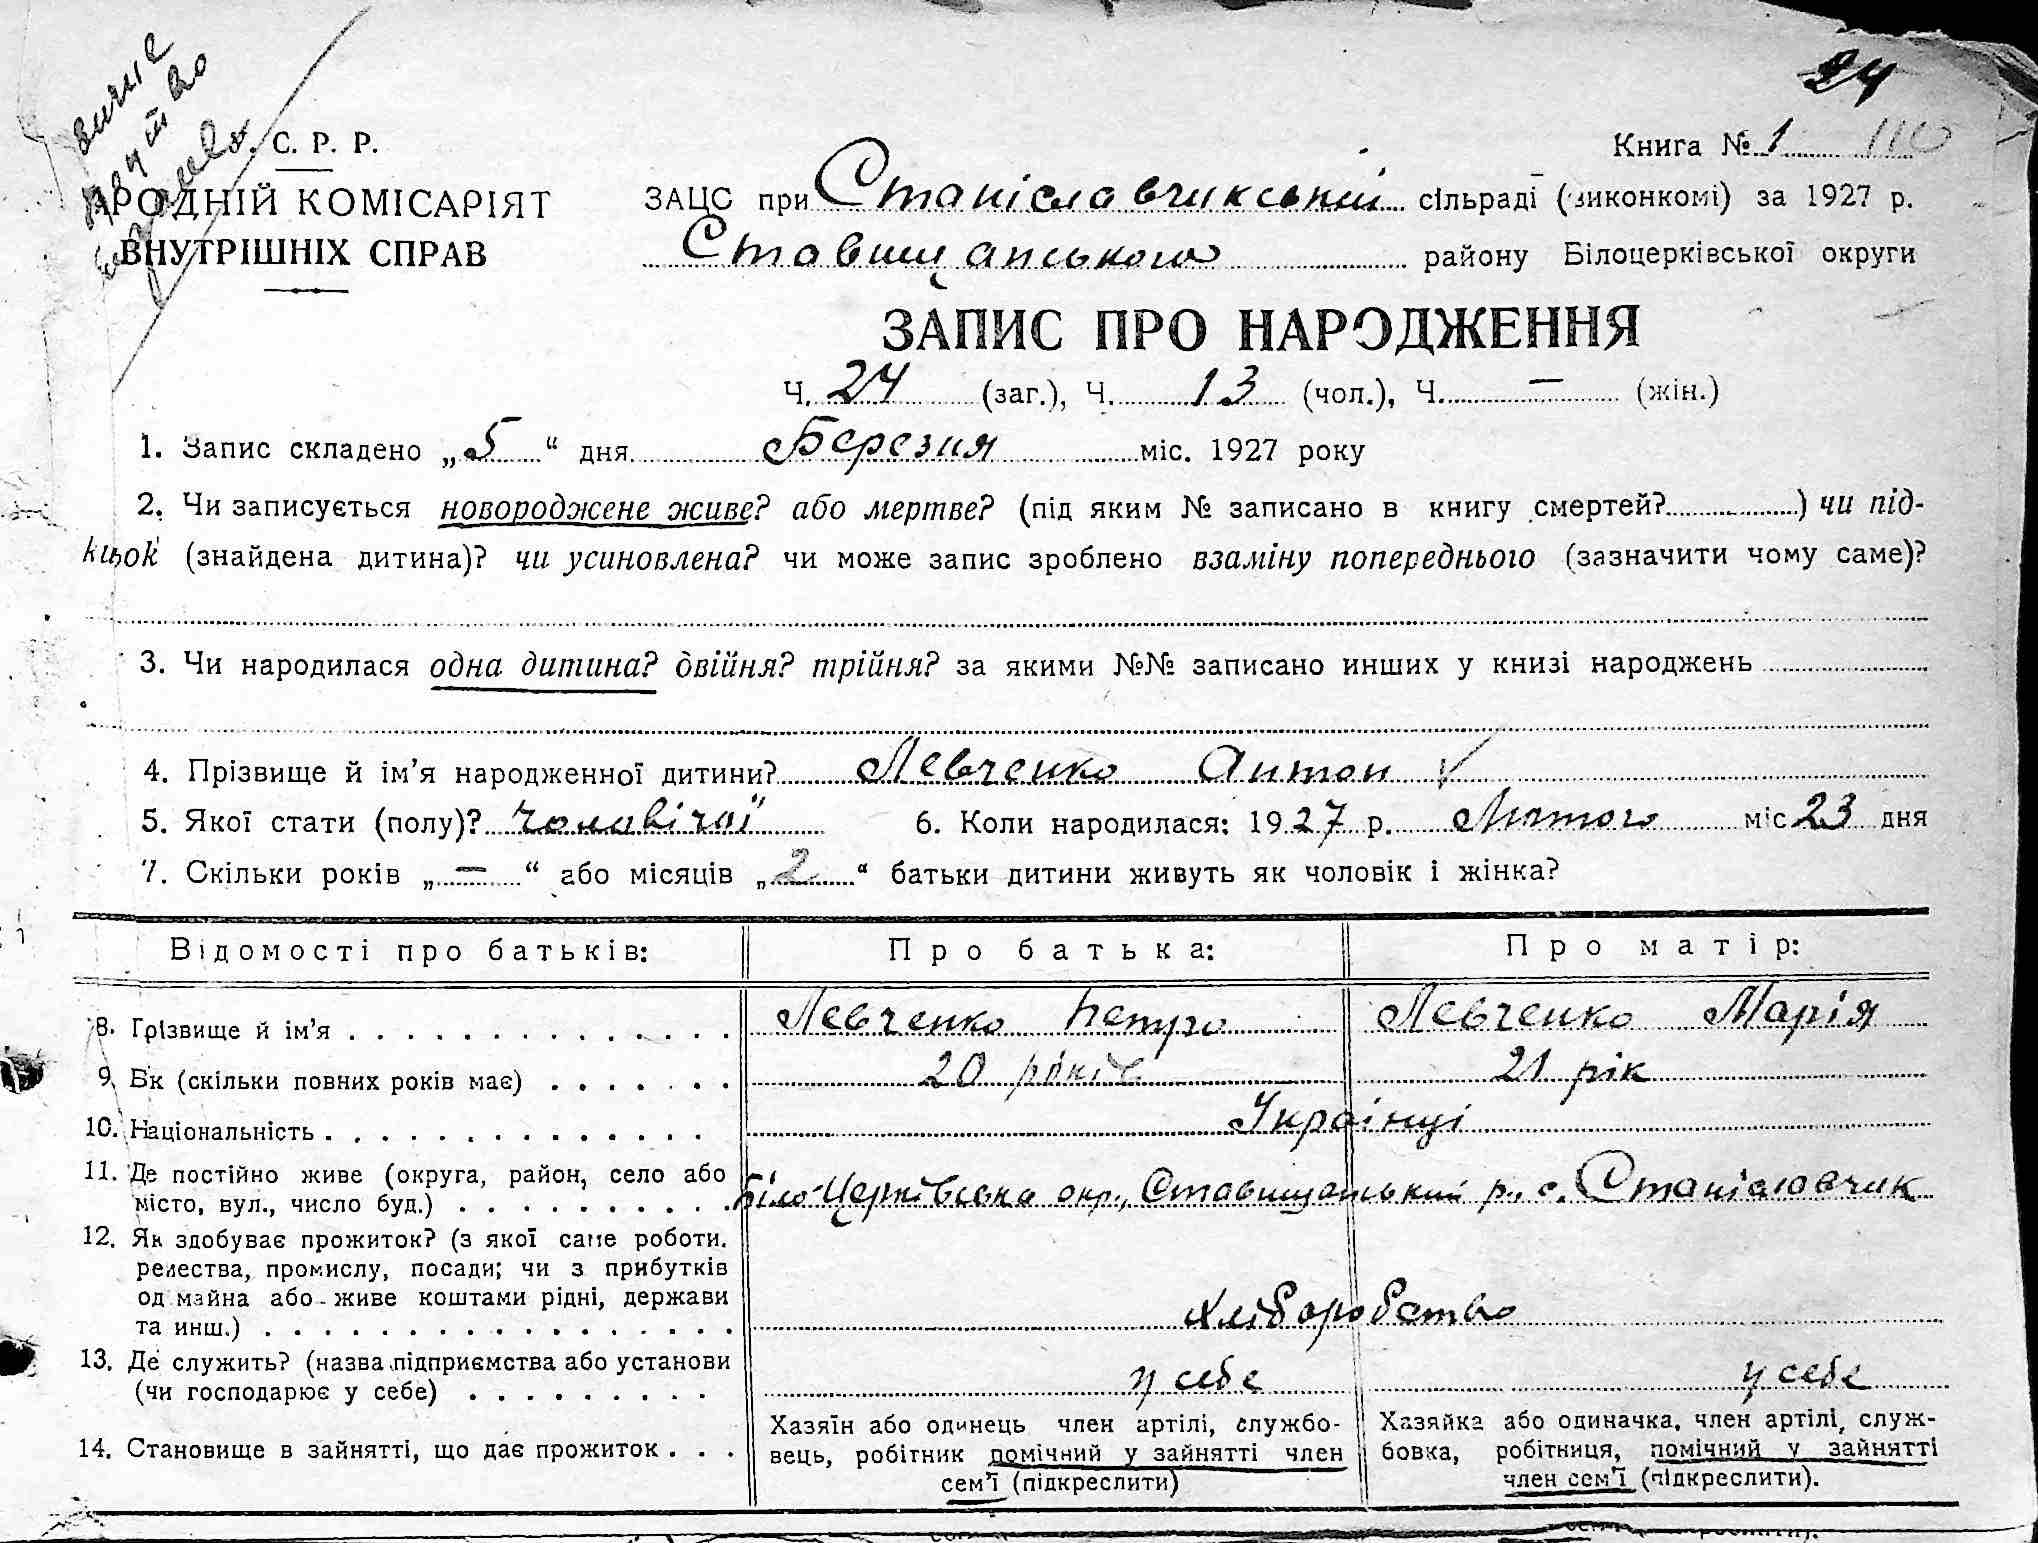 24
Книга № 1 110
С. Р. Р.
ЗАЦС при Станіславчикській сільраді (виконкомі) за 1927 р.
АРОДНІЙ КОМІСАРІЯТ
Ставищанського району Білоцерківської округи
ВНУТРІШНІХ СПРАВ
ЗАПИС ПРО НАРОДЖЕННЯ
Ч. 24 (заг.), Ч. 13 (чол.), Ч. — (жін.)
1. Запис складено „5“ дня Березня міс. 1927 року
2. Чи записується новороджене живе? або мертве? (під яким № записано в книгу смертей? ) чи під-
кидьок (знайдена дитина)? чи усиновлена? чи може запис зроблено взаміну попереднього (зазначити чому саме)?
3. Чи народилася одна дитина? двійня? трійня? за якими №№ записано инших у книзі народжень
4. Прізвище й ім’я народженної дитини? Левченко Антон ✓
5. Якої стати (полу)? чоловічої 6. Коли народилася: 1927 р. Лютого міс 23 дня
7. Скільки років „—“ або місяців „2“ батьки дитини живуть як чоловік і жінка?
Відомості про батьків: Про батька: Про матір:
8. Прізвище й ім’я Левченко Петро Левченко Марія
9. Вік (скільки повних років має) 20 років 21 рік
10. Національність Українці
11. Де постійно живе (округа, район, село або
місто, вул., число буд.) Біло-Церківська окр., Ставищанський р. с. Станіславчик
12. Як здобуває прожиток? (з якої саме роботи.
ремества, промислу, посади; чи з прибутків
од майна або живе коштами рідні, держави
та инш.) Хліборобство
13. Де служить? (назва підприємства або установи
(чи господарює у себе) у себе у себе
14. Становище в зайнятті, що дає прожиток
Хазяїн або одинець член артілі, службо-
вець, робітник помічний у зайнятті член
сем’ї (підкреслити)
Хазяйка або одиначка, член артілі, служ-
бовка, робітниця, помічний у зайнятті
член сем’ї (підкреслити).